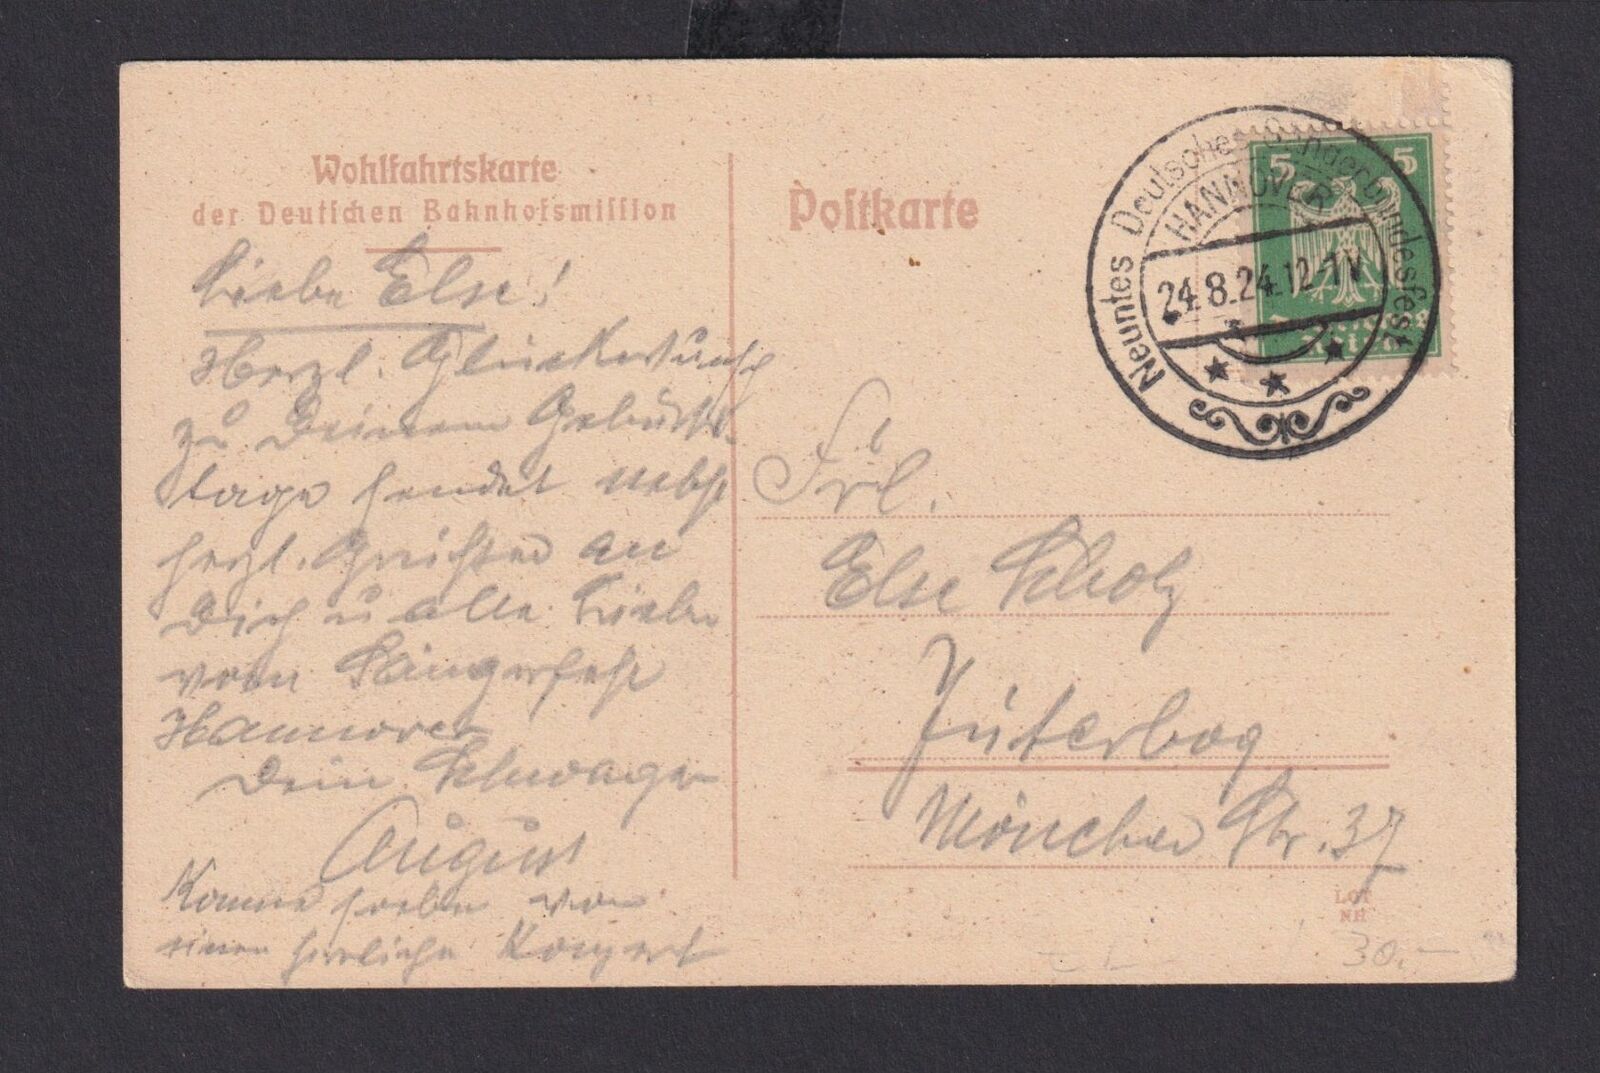 Wohlfahrtskarte
der Deutschen Bahnhofsmission
Postkarte
Neuntes Deutsches Sängerbundesfest
HANNOVER
24.8.24.12-1 V
5 5
Deutsches
Reich
Liebe Else!
Herzl. Glückwunsch
zu Deinem Geburts-
tage sendet nebst
herzl. Grüßen an
Dich u alle Lieben
vom Sängerfest
Hannover
Dein Schwager
August
Komme soeben von
einen herrlichen Konzert
Frl.
Else Scholz
Jüterbog
Mönchen Str. 37
LGI
NH
30,-